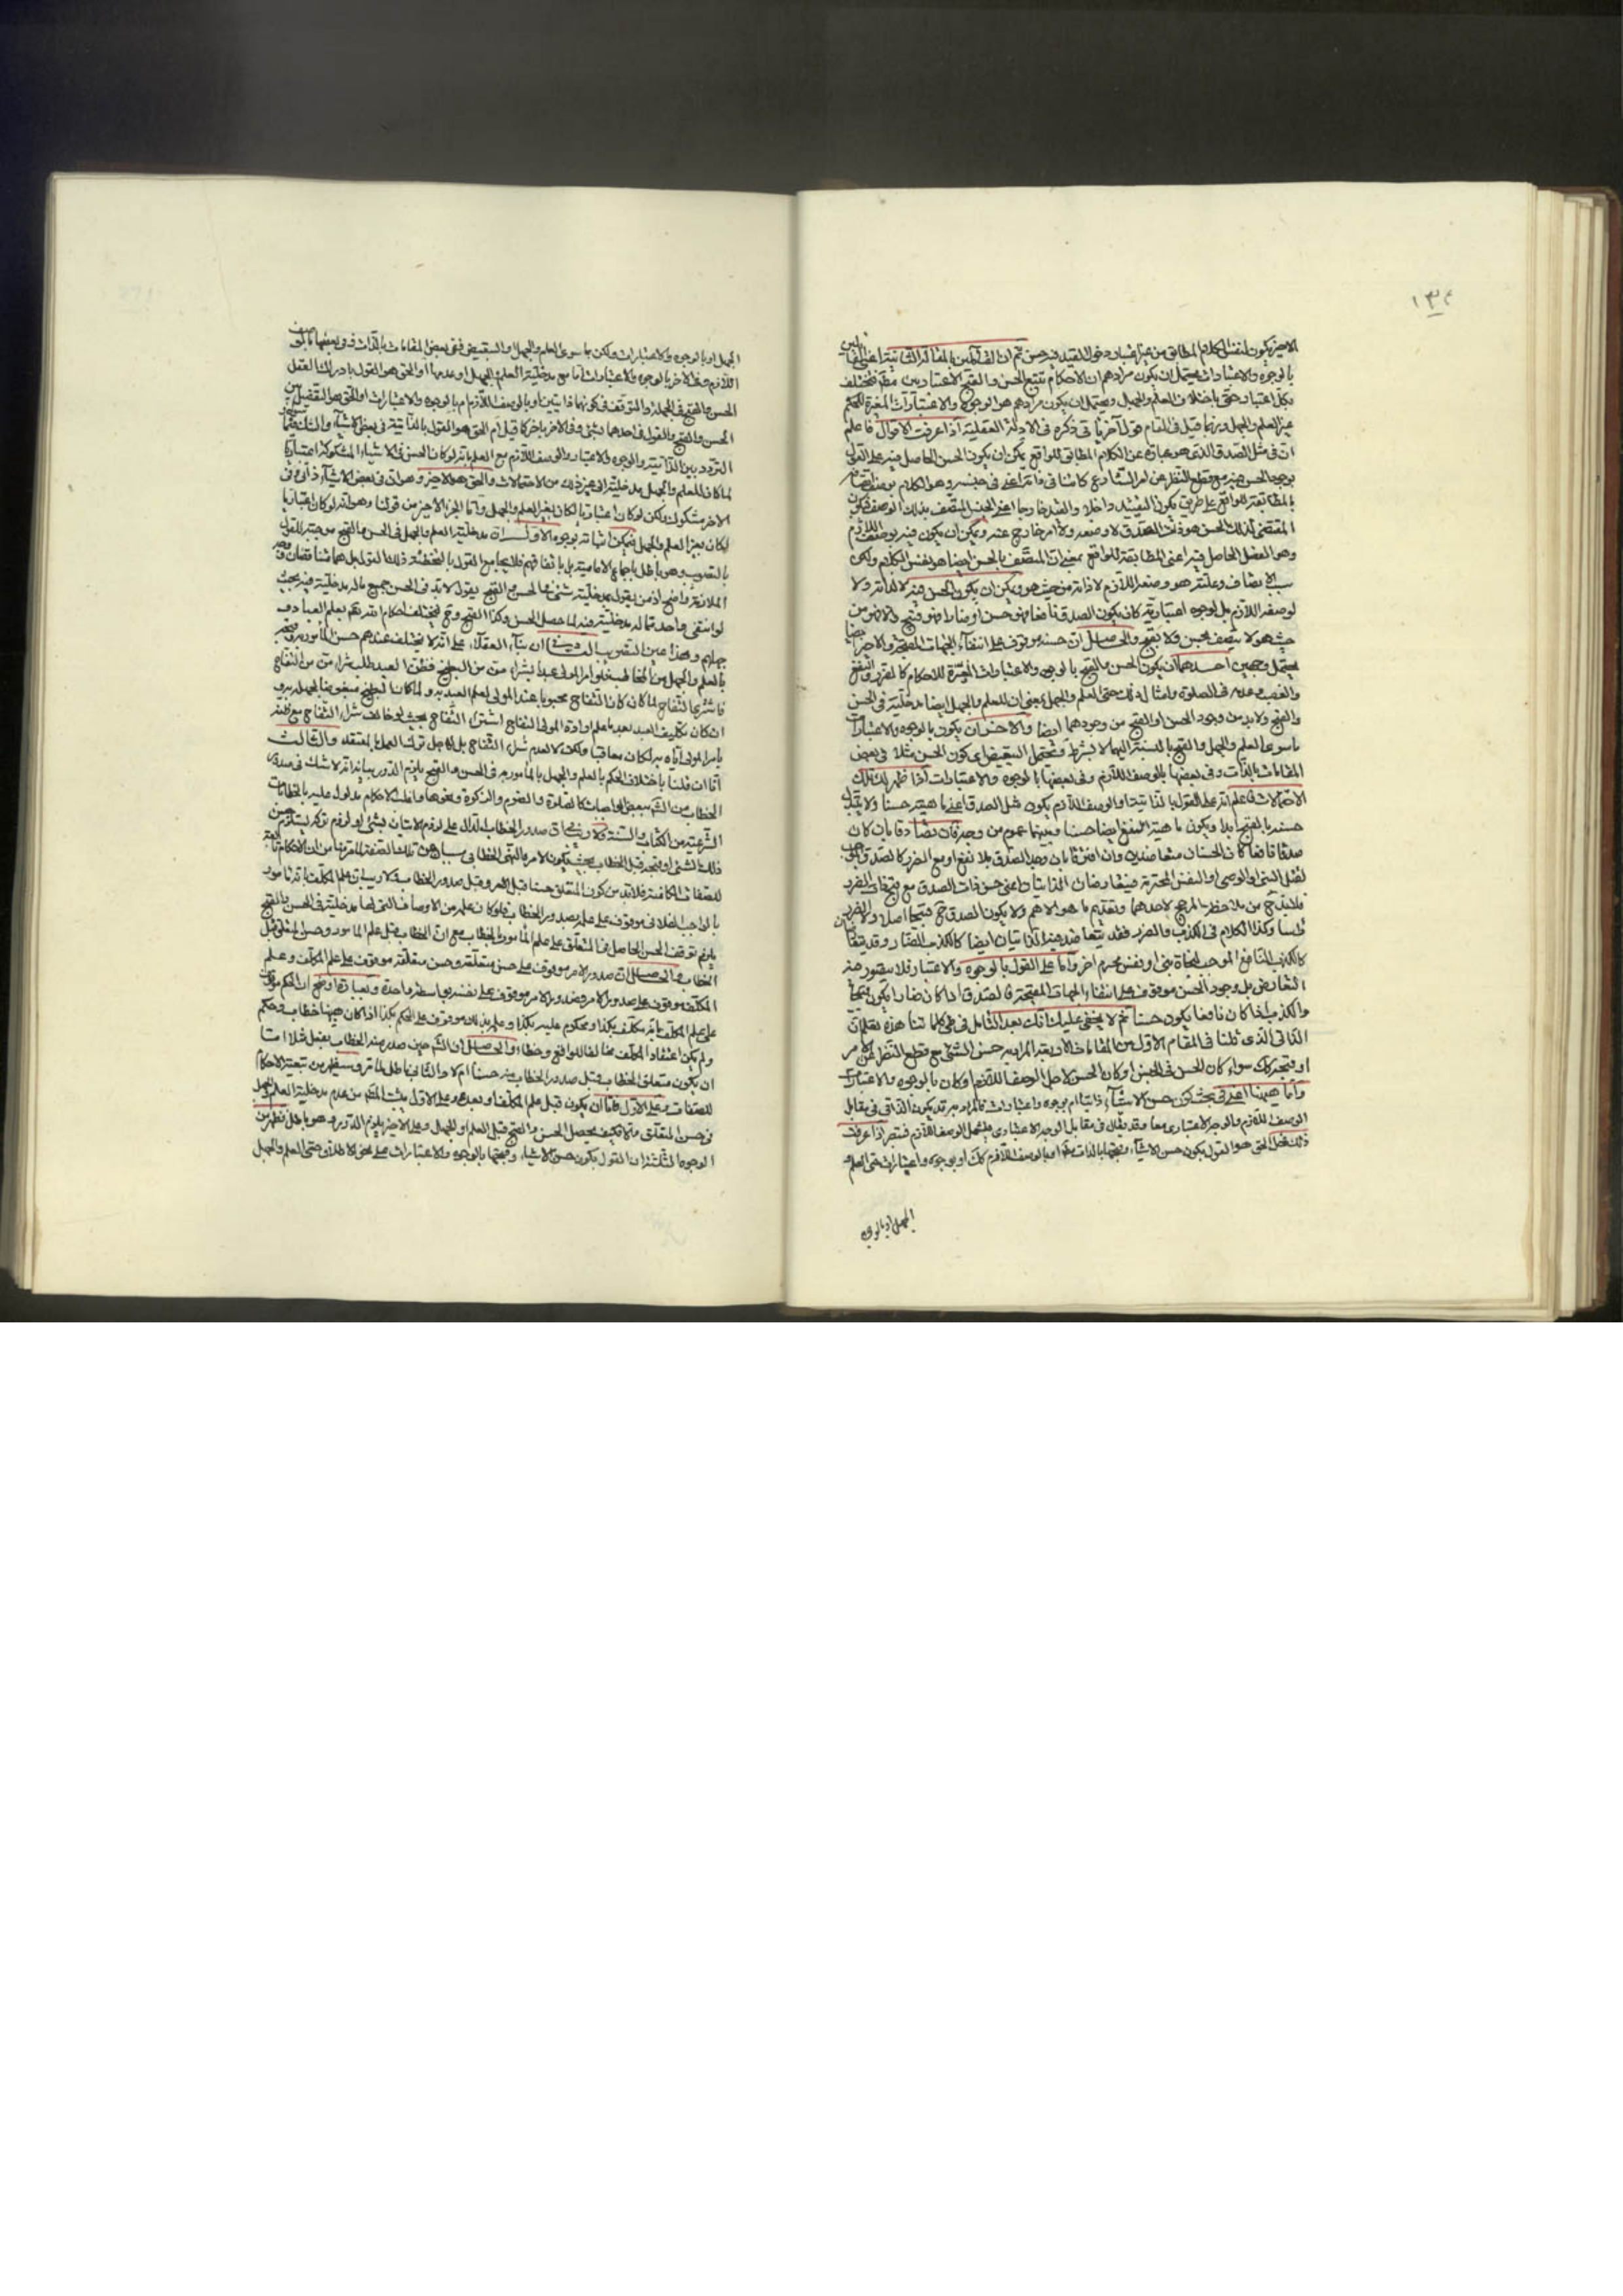 ١٣٤
الاخير يكون لنفس الكلام المطابق من غير اعتبار دخول القيد فيه حسن ثم ان القائلين بالمقالة الثانية اعنى القائلين
بالوجوه والاعتبارات يحتمل ان يكون مرادهم ان الاحكام تتبع الحسن والقبح الاعتباريين فتختلف
بكل اعتبار حتى باختلاف العلم والجهل ويحتمل ان يكون مرادهم هو الوجوه والاعتبارات المغيرة للحكم
غير العلم والجهل وربما قيل فى المقام قول آخر يأتى ذكره فى الادلة العقلية اذا عرفت الاقوال فاعلم
ان فى مثل الصدق الذى هو عبارة عن الكلام المطابق للواقع يمكن ان يكون الحسن الحاصل فيه على القول
المقتضى لذلك الحسن هو ذات الصدق لا وصفه ولا امر خارج عنه ويمكن ان يكون فيه بوصفه اللازم
وهو الفصل الحاصل فيه اعنى المطابقة للواقع بمعنى ان المتصف بالحسن ايضا هو نفس الكلام ولكن
سبب الاتصاف وعلته هو وصفه اللازم لا ذاته من حيث هو ويمكن ان يكون الحسن فيه لا لذاته ولا
لوصفه اللازم بل لوجوه اعتبارية كان يكون الصدق نافعا فهو حسن او ضارا فهو قبيح والا فهو من
حيث هو لا يتصف بحسن ولا بقبح والحاصل ان حسنه موقوف على انتفاء الجهات المقبحة والاخير ايضا
يحتمل وجهين احدهما ان يكون الحسن والقبح بالوجوه والاعتبارات المغيرة للاحكام كالضرر والنفع
والغصب وعدمه فى الصلوة وامثال ذلك حتى العلم والجهل بمعنى ان للعلم والجهل ايضا مدخلية فى الحسن
والقبح ولا بد من وجود الحسن او القبح من وجودهما ايضا والاخر ان يكون بالوجوه والاعتبارات
ما سوى العلم والجهل والقبح بالنسبة اليهما لا بشرط ويحتمل التبعيض اى كون الحسن مثلا فى بعض
المقامات بالذات وفى بعضها بالوصف اللازم وفى بعضها بالوجوه والاعتبارات اذا ظهر لك تلك
الاحتمالات فاعلم انه على القول بالذاتية او الوصف اللازم يكون مثل الصدق اعنى ماهيته حسنا ولا يتبدل
حسنه بالقبح ابدا ويكون ماهية النفع ايضا حسنا وبينهما عموم من وجه فان تصادقا بان كان
صدقا نافعا كان الحسنان متعاضدين وان افترقا بان وجد الصدق بلا نفع او مع الضرر كالصدق الموجب
لقتل النبى او الوصى او النفس المحترمة فيتعارضان الذاتيتان اعنى حسن ذات الصدق مع قبح ذات الضرر
فلا بد ح من ملاحظة المرجح لاحدهما وتقديم ما هو الاهم ولا يكون الصدق ح قبيحا اصلا ولا الضرر
حسنا وكذا الكلام فى الكذب والضرر فقد يتعاضد فيه الذاتيان ايضا كالكذب الضار وقد يتعارضان
كالكذب النافع الموجب لنجاة نبى او نفس محترم اخر واما على القول بالوجوه والاعتبار فلا يتصور فيه
التعارض بل وجود الحسن موقوف على انتفاء الجهات المقبحة فالصدق اذا كان ضارا يكون قبيحا
والكذب اذا كان نافعا يكون حسنا ثم لا يخفى عليك انك بعد التأمل فى طى كلماتنا هذه تعلم ان
الذاتى الذى قلنا فى المقام الاول من المقامات
او قبحه كك سواء كان الحسن فى الجنس او كان الحسن لاجل الوصف اللازم او كان بالوجوه والاعتبارات
واما هيهنا اعنى فى بحث كون حسن الاشياء ذاتيا ام بوجوه واعتبارات فالمراد به قد يكون الذاتى فى مقابل
الوصف اللازم والوجه الاعتبارى معا وقد يقال فى مقابل الوجه الاعتبارى فيشمل الوصف اللازم فتبصر اذا عرفت
ذلك فهل الحق هو القول بكون حسن الاشياء وقبحها بالذات مطلقا او بالوصف اللازم كك او بوجوه واعتبارات حتى العلم و
الجهل او بالوجوه
الجهل او بالوجوه والاعتبارات ولكن ما سوى العلم والجهل او التبعيض ففى بعض المقامات بالذات وفى بعضها بالوصف
اللازم وفى الاخر بالوجوه والاعتبارات اما مع مدخلية العلم والجهل او عدمها او الحق هو القول بادراك العقل
الحسن والقبح فى الجملة والتوقف فى كونهما ذاتيين او بالوصف اللازم ام بالوجوه والاعتبارات او الحق هو التفصيل بين
الحسن والقبح والقول فى احدهما بشئ وفى الاخر باخر كما قيل ام الحق هو القول بالذاتية فى بعض الاشياء
التردد بين الذاتية والوجوه والاعتبار والوصف اللازم مع العلم بانه لو كان الحسن فى الاشياء المشكوكة اعتباريا
لما كان للعلم والجهل مدخلية الى غير ذلك من الاحتمالات والحق هو الاخير وهو ان فى بعض الاشياء ذاتى وفى
الاخر مشكوك ولكن لو كان اعتباريا لكان بغير العلم والجهل واما الجزء الاخير من قولنا وهو انه لو كان اعتباريا
لكان بغير العلم والجهل فيمكن اثباته بوجوه الاول ان مدخلية العلم والجهل فى الحسن والقبح موجبة للقول
بالتصويب وهو باطل باجماع الامامية بل باتفاقهم فلا يجامع القول بالتخطئة ذلك القول بل هما متناقضان
الملازمة واضح اذ من يقول بمدخلية شئ فى الحسن والقبح يقول لا بد فى الحسن جميع ماله مدخلية فيه بحيث
لو انتفى واحد مما له مدخلية فيه لما حصل الحسن وكذا القبح وح فيختلف احكام الله تعالى بعلم العباد و
جهلهم وهذا عين التصويب الثانى ان بناء العقلاء على انه لا يختلف عندهم حسن المأمور به وقبحه
بالعلم والجهل من المخاطب فلو امر المولى عبدا بشراء من من البطيخ فظن العبد طلب شراء من من التفاح
فاشترى التفاح لما كان التفاح محبوبا عند المولى لعلم العبد به ولما كان البطيخ مبغوضا لجهله به و
ان كان تكليف العبد بعد ما علم ارادة المولى التفاح اشتراء التفاح بحيث لو خالف شراء التفاح مع ظنه
بامر المولى اياه به لكان معاقبا ولكن لا لعدم شراء التفاح بل لاجل ترك العمل بالمعتقد والثالث
انا ان قلنا باختلاف الحكم بالعلم والجهل بالمأمور به فى الحسن والقبح يلزم الدور بيانه انه لا شك فى صدور
الخطاب من الشارع ببعض الواجبات كالصلوة والصوم والزكوة ونحوها واغلب الاحكام مدلول عليه بالخطابات
الشرعية من الكتاب والسنة ولا ريب فى ان صدور الخطاب الدال على لزوم الاتيان بشئ او لزوم تركه يستلزم حسن
ذلك الشئ او قبحه قبل الخطاب بحيث يكون الامر والنهى الخطابى مسببا عن تلك الصفة لما مر من ان الاحكام تابعة
للصفات الكامنة فلا بد من كون المتعلق حسنا قبل الامر وقبل صدور الخطاب ولا ريب ان علم المكلف بانه مأمور
بالواجب الفلانى موقوف على علمه بصدور الخطاب فلو كان علمه من الاوصاف التى لها مدخلية فى الحسن والقبح
يلزم توقف الحسن الحاصل فى المتعلق على علم المأمور بالخطاب مع ان الخطاب قبل علم المأمور وحسن المتعلق قبل
الخطاب والحاصل ان صدور الامر موقوف على حسن متعلقه وحسن متعلقه موقوف على علم المكلف وعلم
المكلف موقوف على صدور الامر فصدور الامر موقوف على نفسه بواسطة واحدة وبعبارة اوضح ان الحكم موقوف
على علم المكلف بانه مكلف بكذا ومحكوم عليه بكذا وعلمه بذلك موقوف على الحكم بكذا اذا كان هيهنا خطاب وحكم
ولم يكن اعتقاد المكلف مخالفا للواقع وخطاء والحاصل ان الشارع حين صدر منه الخطاب بفعل مثلا اما
ان يكون متعلق الخطاب قبل صدور الخطاب منه حسنا ام لا والثانى باطل لما مر وسيظهر من تبعية الاحكام
للصفات وعلى الاول فاما ان يكون قبل علم المكلف او بعده وعلى الاول يثبت المطلوب من عدم مدخلية العلم والجهل
فى حسن المتعلق والا فكيف يحصل الحسن والقبح قبل العلم او الجهل وعلى الاخير يلزم الدور وهو باطل فظهر من
الوجوه الثلثة ان القول بكون حسن الاشياء وقبحها بالوجوه والاعتبارات على نحو الاطلاق حتى العلم والجهل